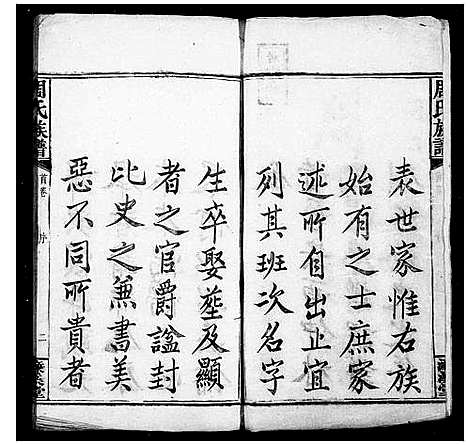 周氏族譜
表世家惟右族
始有之士庶家
述所自出止宜
列其班次名字
生卒娶塟及顯
者之官爵諡封
比史之兼書美
惡不同所貴者
周氏族譜
首卷
序
二